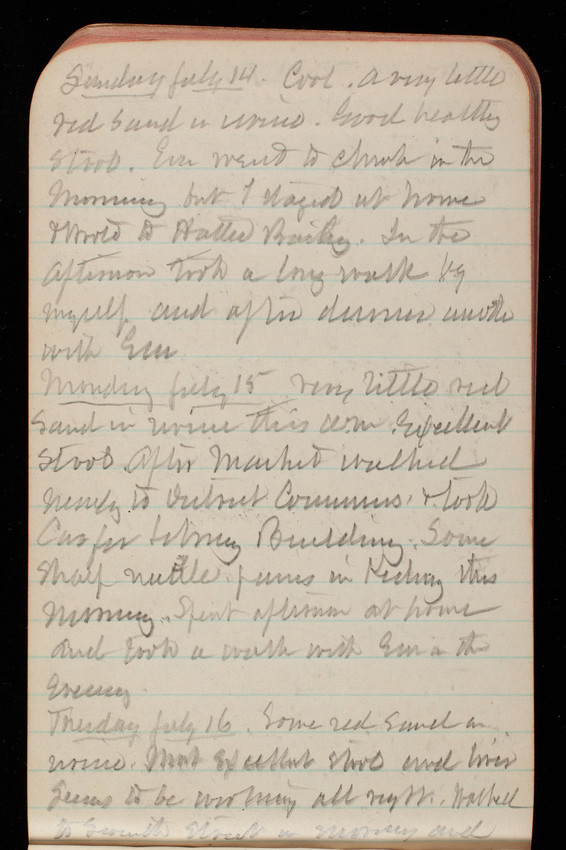 Sunday July 14. Cool. A very little
red sand in urine. Good healthy
stool. Em went to church in the
morning but I staid at home
& wrote to Hattie Bailey. In the
afternoon took a long walk by
myself and after dinner another
with Em
Monday July 15 very little red
sand in urine this a.m. Excellent
stool After Market walked
nearly to District Commrs. & took
Car for Library Building. Some
sharp needle pains in Kidney this
morning. Spent afternoon at home
and took a walk with Em in the
Evening
Tuesday July 16. Some red sand in
urine. Most Excellent stool and liver
seems to be working all right. Walked
to Seventh Street in morning and